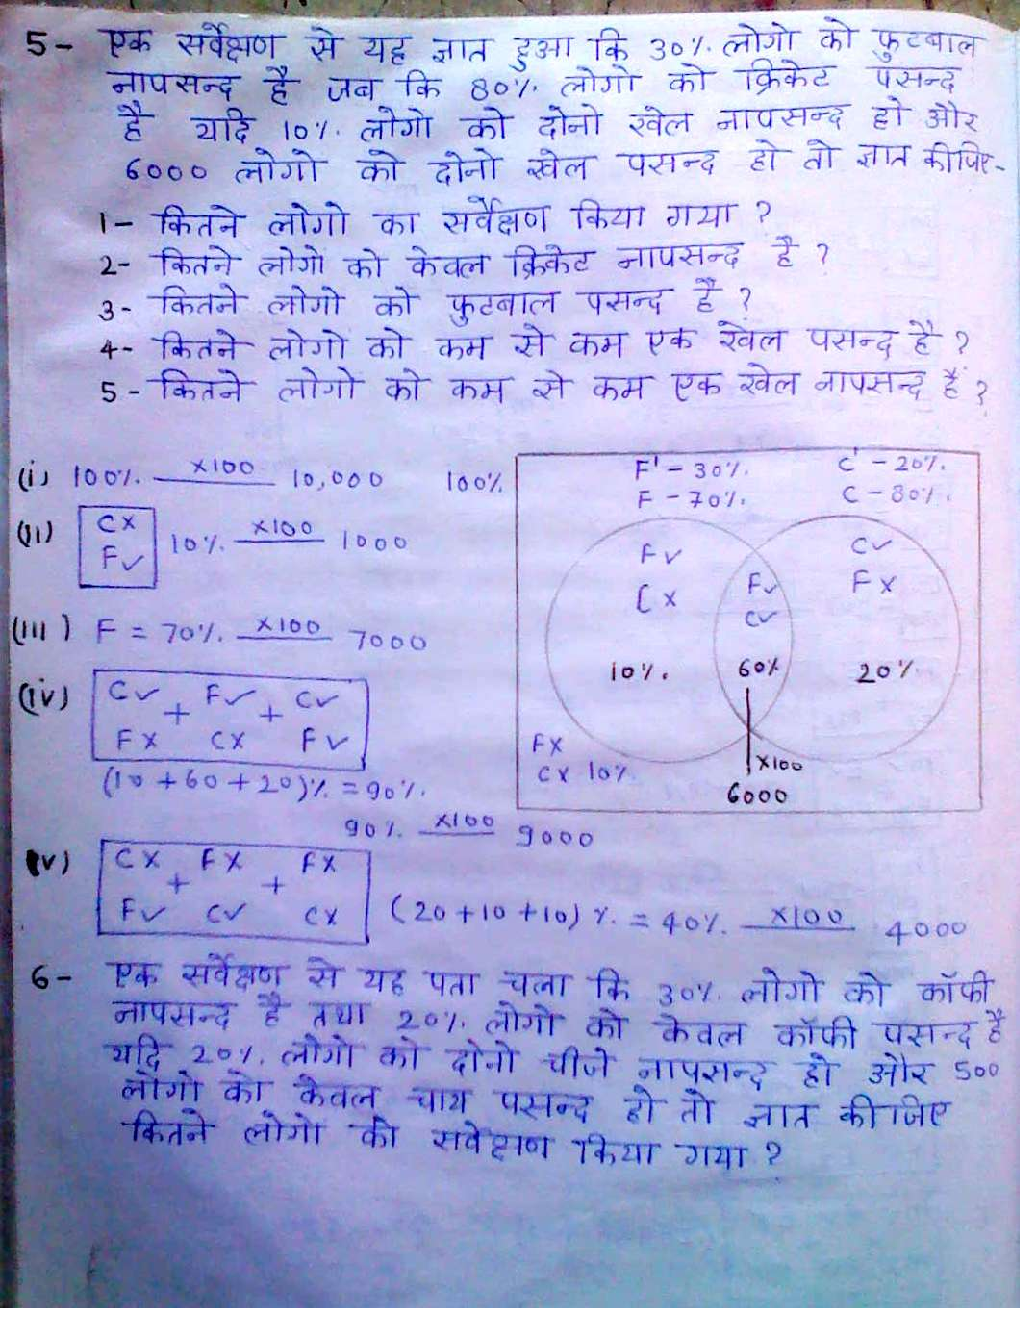 5- एक सर्वेक्षण से यह ज्ञात हुआ कि 30% लोगो को फुटबाल
नापसन्द है जब कि 80% लोगो को क्रिकेट पसन्द
है यदि 10% लोगो को दोनो खेल नापसन्द हो और
6000 लोगो को दोनो खेल पसन्द हो तो ज्ञात कीजिए-
1- कितने लोगो का सर्वेक्षण किया गया ?
2- कितने लोगो को केवल क्रिकेट नापसन्द है ?
3- कितने लोगो को फुटबाल पसन्द है ?
4- कितने लोगो को कम से कम एक खेल पसन्द है ?
5- कितने लोगो को कम से कम एक खेल नापसन्द है ?
(i) 100% ×100 10,000 100%
(ii) C× F✓ 10% ×100 1000
(iii) F = 70% ×100 7000
(iv) C✓ + F✓ + C✓
F× C× F✓
(10+60+20)% = 90%
90% ×100 9000
(v) C× + F× + F×
F✓ C✓ C×
(20+10+10)% = 40% ×100 4000
F' - 30% C' - 20%
F - 70% C - 80%
F✓ C✓
C× F✓ F×
C✓
10% 60% 20%
F×
C× 10% ×100
6000
6- एक सर्वेक्षण से यह पता चला कि 30% लोगो को कॉफी
नापसन्द है तथा 20% लोगो को केवल कॉफी पसन्द है
यदि 20% लोगो को दोनो चीजे नापसन्द हो और 500
लोगो को केवल चाय पसन्द हो तो ज्ञात कीजिए
कितने लोगो को सर्वेक्षण किया गया ?